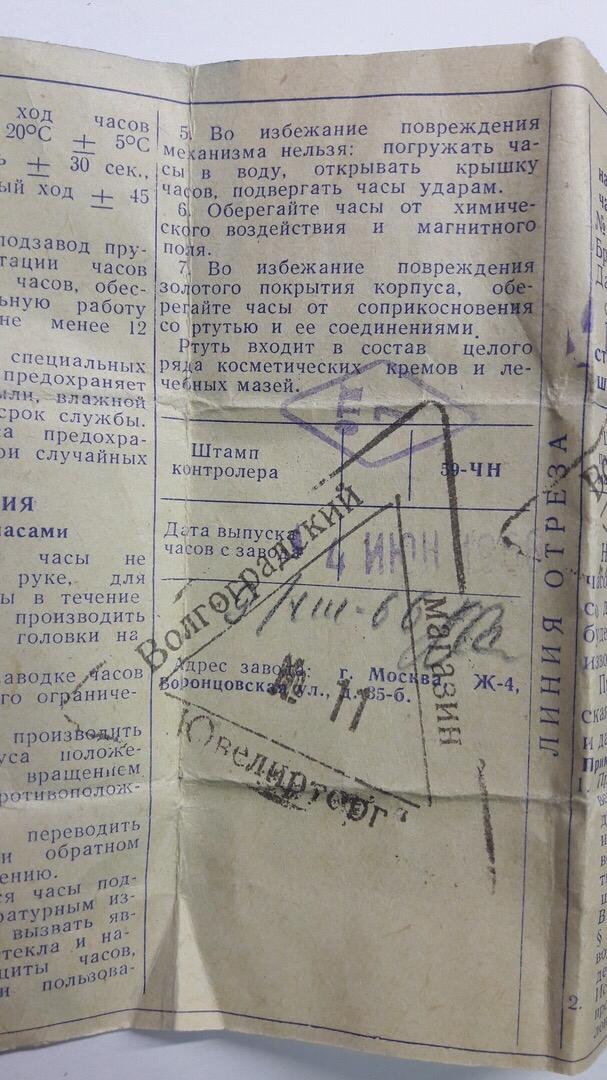 ход часов
20°С ± 5°С
± 30 сек.,
ый ход ± 45
подзавод пру-
тации часов
часов, обес-
ьную работу
не менее 12
специальных
предохраняет
ыли, влажной
срок службы.
са предохра-
ри случайных
ИЯ
часами
часы не
руке, для
ы в течение
производить
головки на
заводке часов
го ограниче-
производить
уса положе-
вращением
ротивополож-
переводить
и обратном
ению.
ся часы под-
ратурным из-
вызвать яв-
текла и на-
щиты часов,
и пользова-
5. Во избежание повреждения
механизма нельзя: погружать ча-
сы в воду, открывать крышку
часов, подвергать часы ударам.
6. Оберегайте часы от химиче-
ского воздействия и магнитного
поля.
7. Во избежание повреждения
золотого покрытия корпуса, обе-
регайте часы от соприкосновения
со ртутью и ее соединениями.
Ртуть входит в состав целого
ряда косметических кремов и ле-
чебных мазей.
ОТК
7
Штамп
контролера
59-ЧН
Дата выпуска
часов с завода
4 ИЮН
Адрес завода: г. Москва, Ж-4,
Воронцовская ул., д. 35-б.
Волгоградский
магазин
№ 11
"Ювелирторг"
ЛИНИЯ ОТРЕЗА
1.
2.